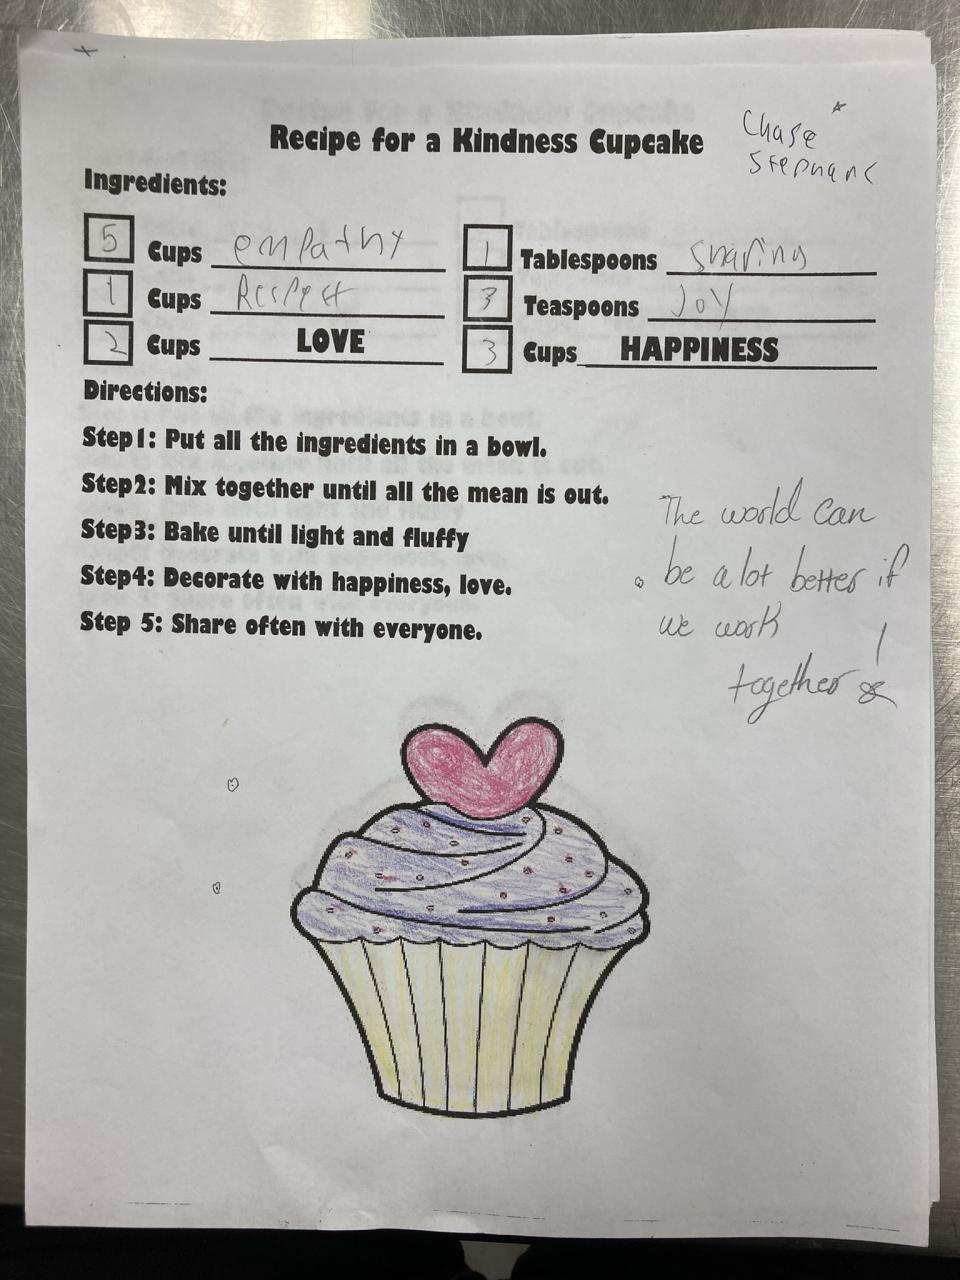 Recipe for a Kindness Cupcake
Chase
Ingredients:
5 Cups empathy
1 Tablespoons sharing
1 Cups Respect
3 Teaspoons Joy
2 Cups LOVE
3 Cups HAPPINESS
Directions:
Step1: Put all the ingredients in a bowl.
Step2: Mix together until all the mean is out.
Step3: Bake until light and fluffy
Step4: Decorate with happiness, love.
Step 5: Share often with everyone.
The world can
be a lot better if
we work
together !